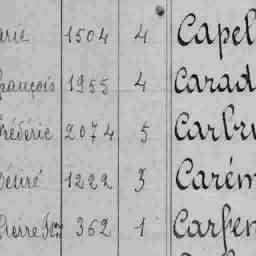 arie 1504 4 Capel
François 1955 4 Carad
Frédéric 2074 5 Carbru
Désiré 1222 3 Carém
Pierre 362 1 Carpen